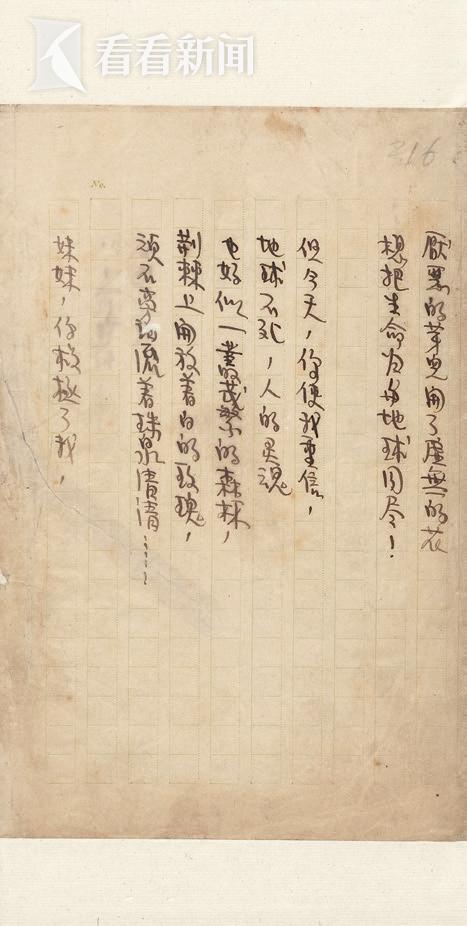 看看新闻
316
No.
厭惡的芽兒開了虛無的花
想把生命为与地球同尽！
但今天，你使我重信，
地球不死，人的灵魂
也好似一叢茂繁的森林，
荆棘上開放着白的玫瑰，
頑石旁流着珠泉清清……
妹妹，你拯了我，